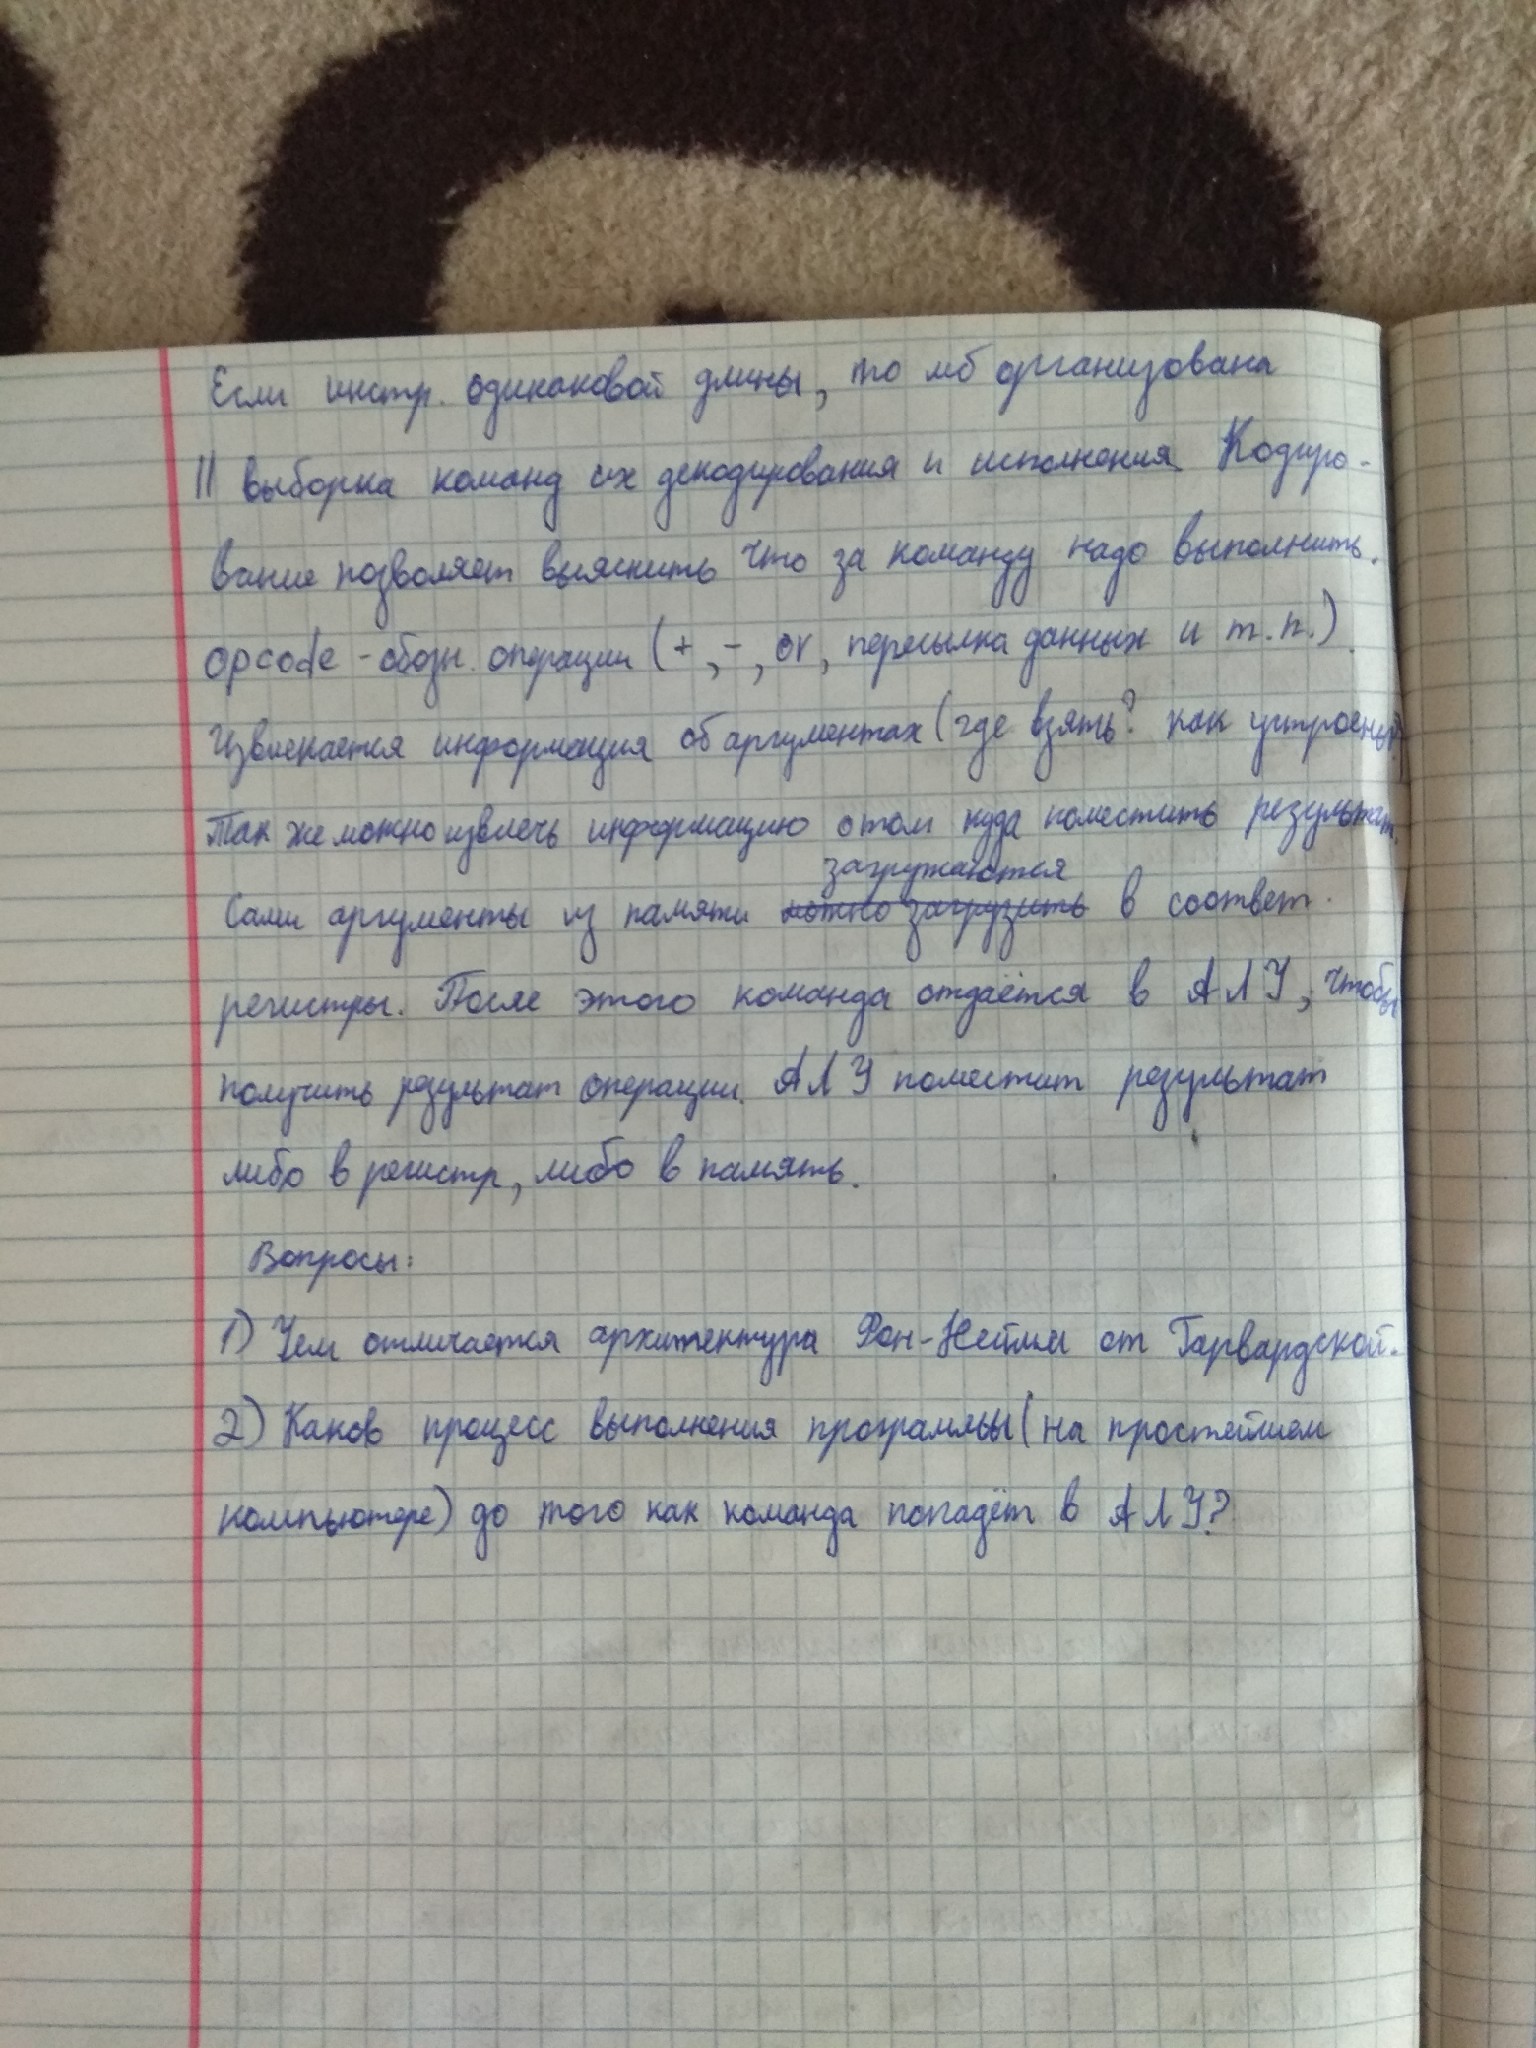 Если инстр. одинаковой длины, то мб организована
|| выборка команд их декодирования и исполнения Кодиро-
вание позволяет выяснить что за команду надо выполнить.
opcode - обозн. операции (+, -, or, пересылка данных и т.п.).
Извлекается информация об аргументах (где взять? как устроены?)
Так же можно извлечь информацию о том куда поместить результат.
загружаются
Сами аргументы из памяти можно загрузить в соответ.
регистры. После этого команда отдаётся в АЛУ, чтобы
получить результат операции. АЛУ поместит результат
либо в регистр, либо в память.
Вопросы:
1) Чем отличается архитектура Фон-Неймы от Гарвардской.
2) Каков процесс выполнения программы (на простейшем
компьютере) до того как команда попадёт в АЛУ?